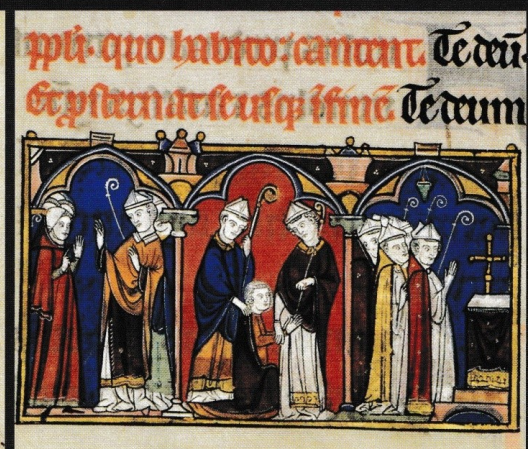 ppl̄i. quo habito: cantent. Te deū.
Et p̄sternat se usq; ī finē. Te deum